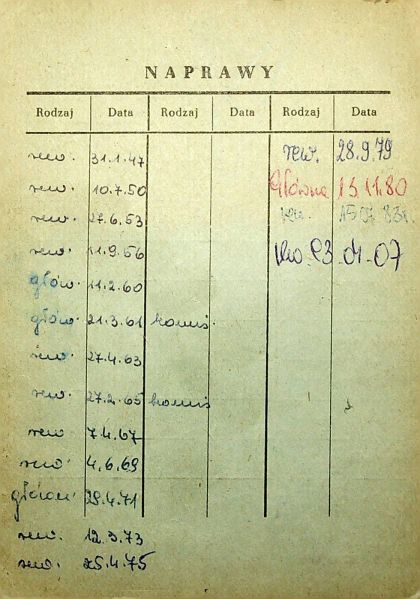 NAPRAWY
Rodzaj Data Rodzaj Data Rodzaj Data
rew. 31.1.47
rew. 10.7.50
rew. 27.6.53
rew. 11.9.56
głów. 11.2.60
głów. 21.3.61 komis
rew. 27.4.63
rew. 27.2.65 komis
rew 7.4.67
rew. 4.6.69
główn. 29.4.71
rew. 12.3.73
rew. 25.4.75
rew. 28.9.79
Główna 13.11.80
rew. 83r.
04-07